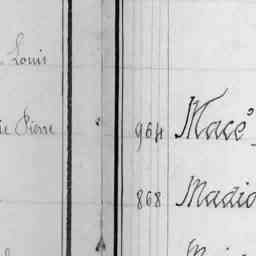 Louis
ie Pierre
964 Macé
868 Madio